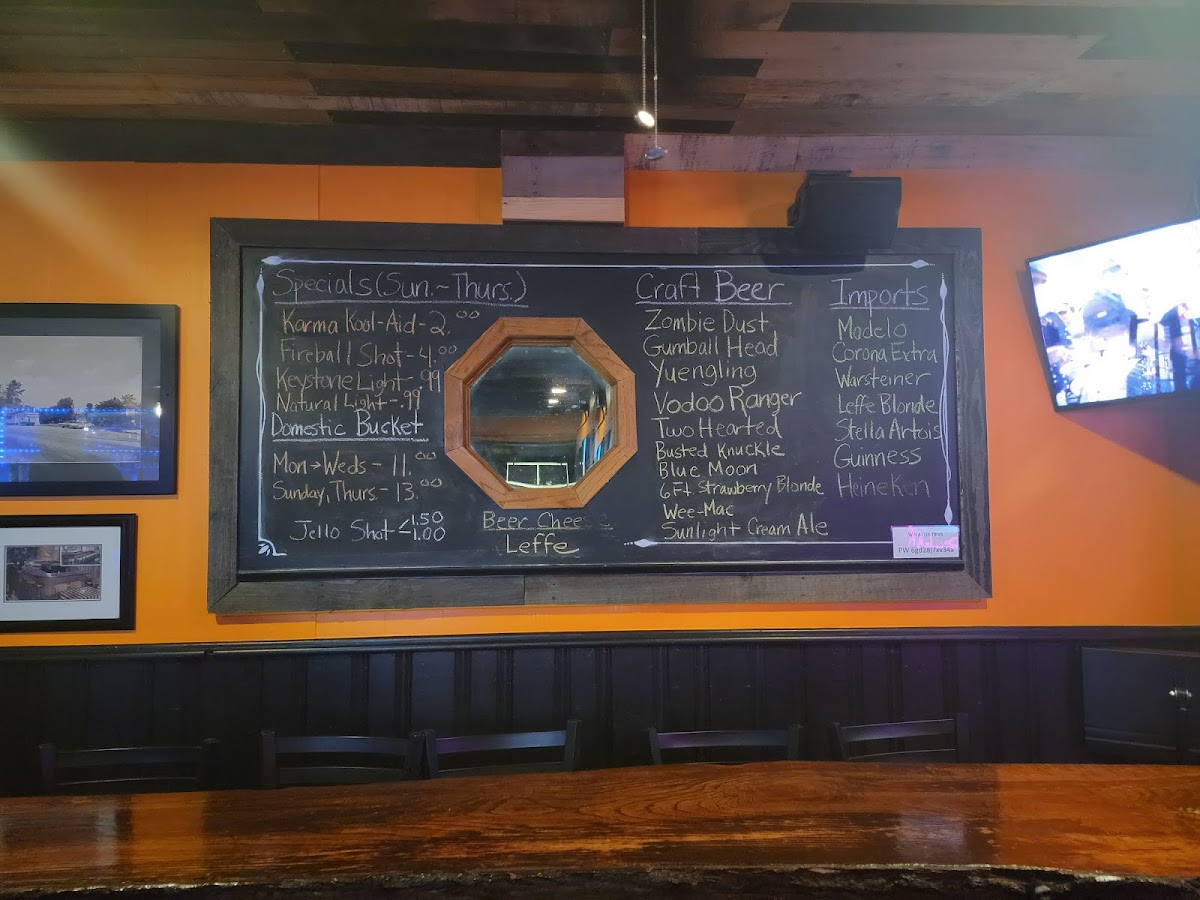 Specials (Sun.-Thurs.)
Karma Kool-Aid - 2.00
Fireball Shot - 4.00
Keystone Light - .99
Natural Light - .99
Domestic Bucket
Mon → Weds - 11.00
Sunday, Thurs. - 13.00
Jello Shot < 1.50
1.00
Beer Cheese
Leffe
Craft Beer
Zombie Dust
Gumball Head
Yuengling
Vodoo Ranger
Two Hearted
Busted Knuckle
Blue Moon
6 Ft. Strawberry Blonde
Wee-Mac
Sunlight Cream Ale
Imports
Modelo
Corona Extra
Warsteiner
Leffe Blonde
Stella Artois
Guinness
Heineken